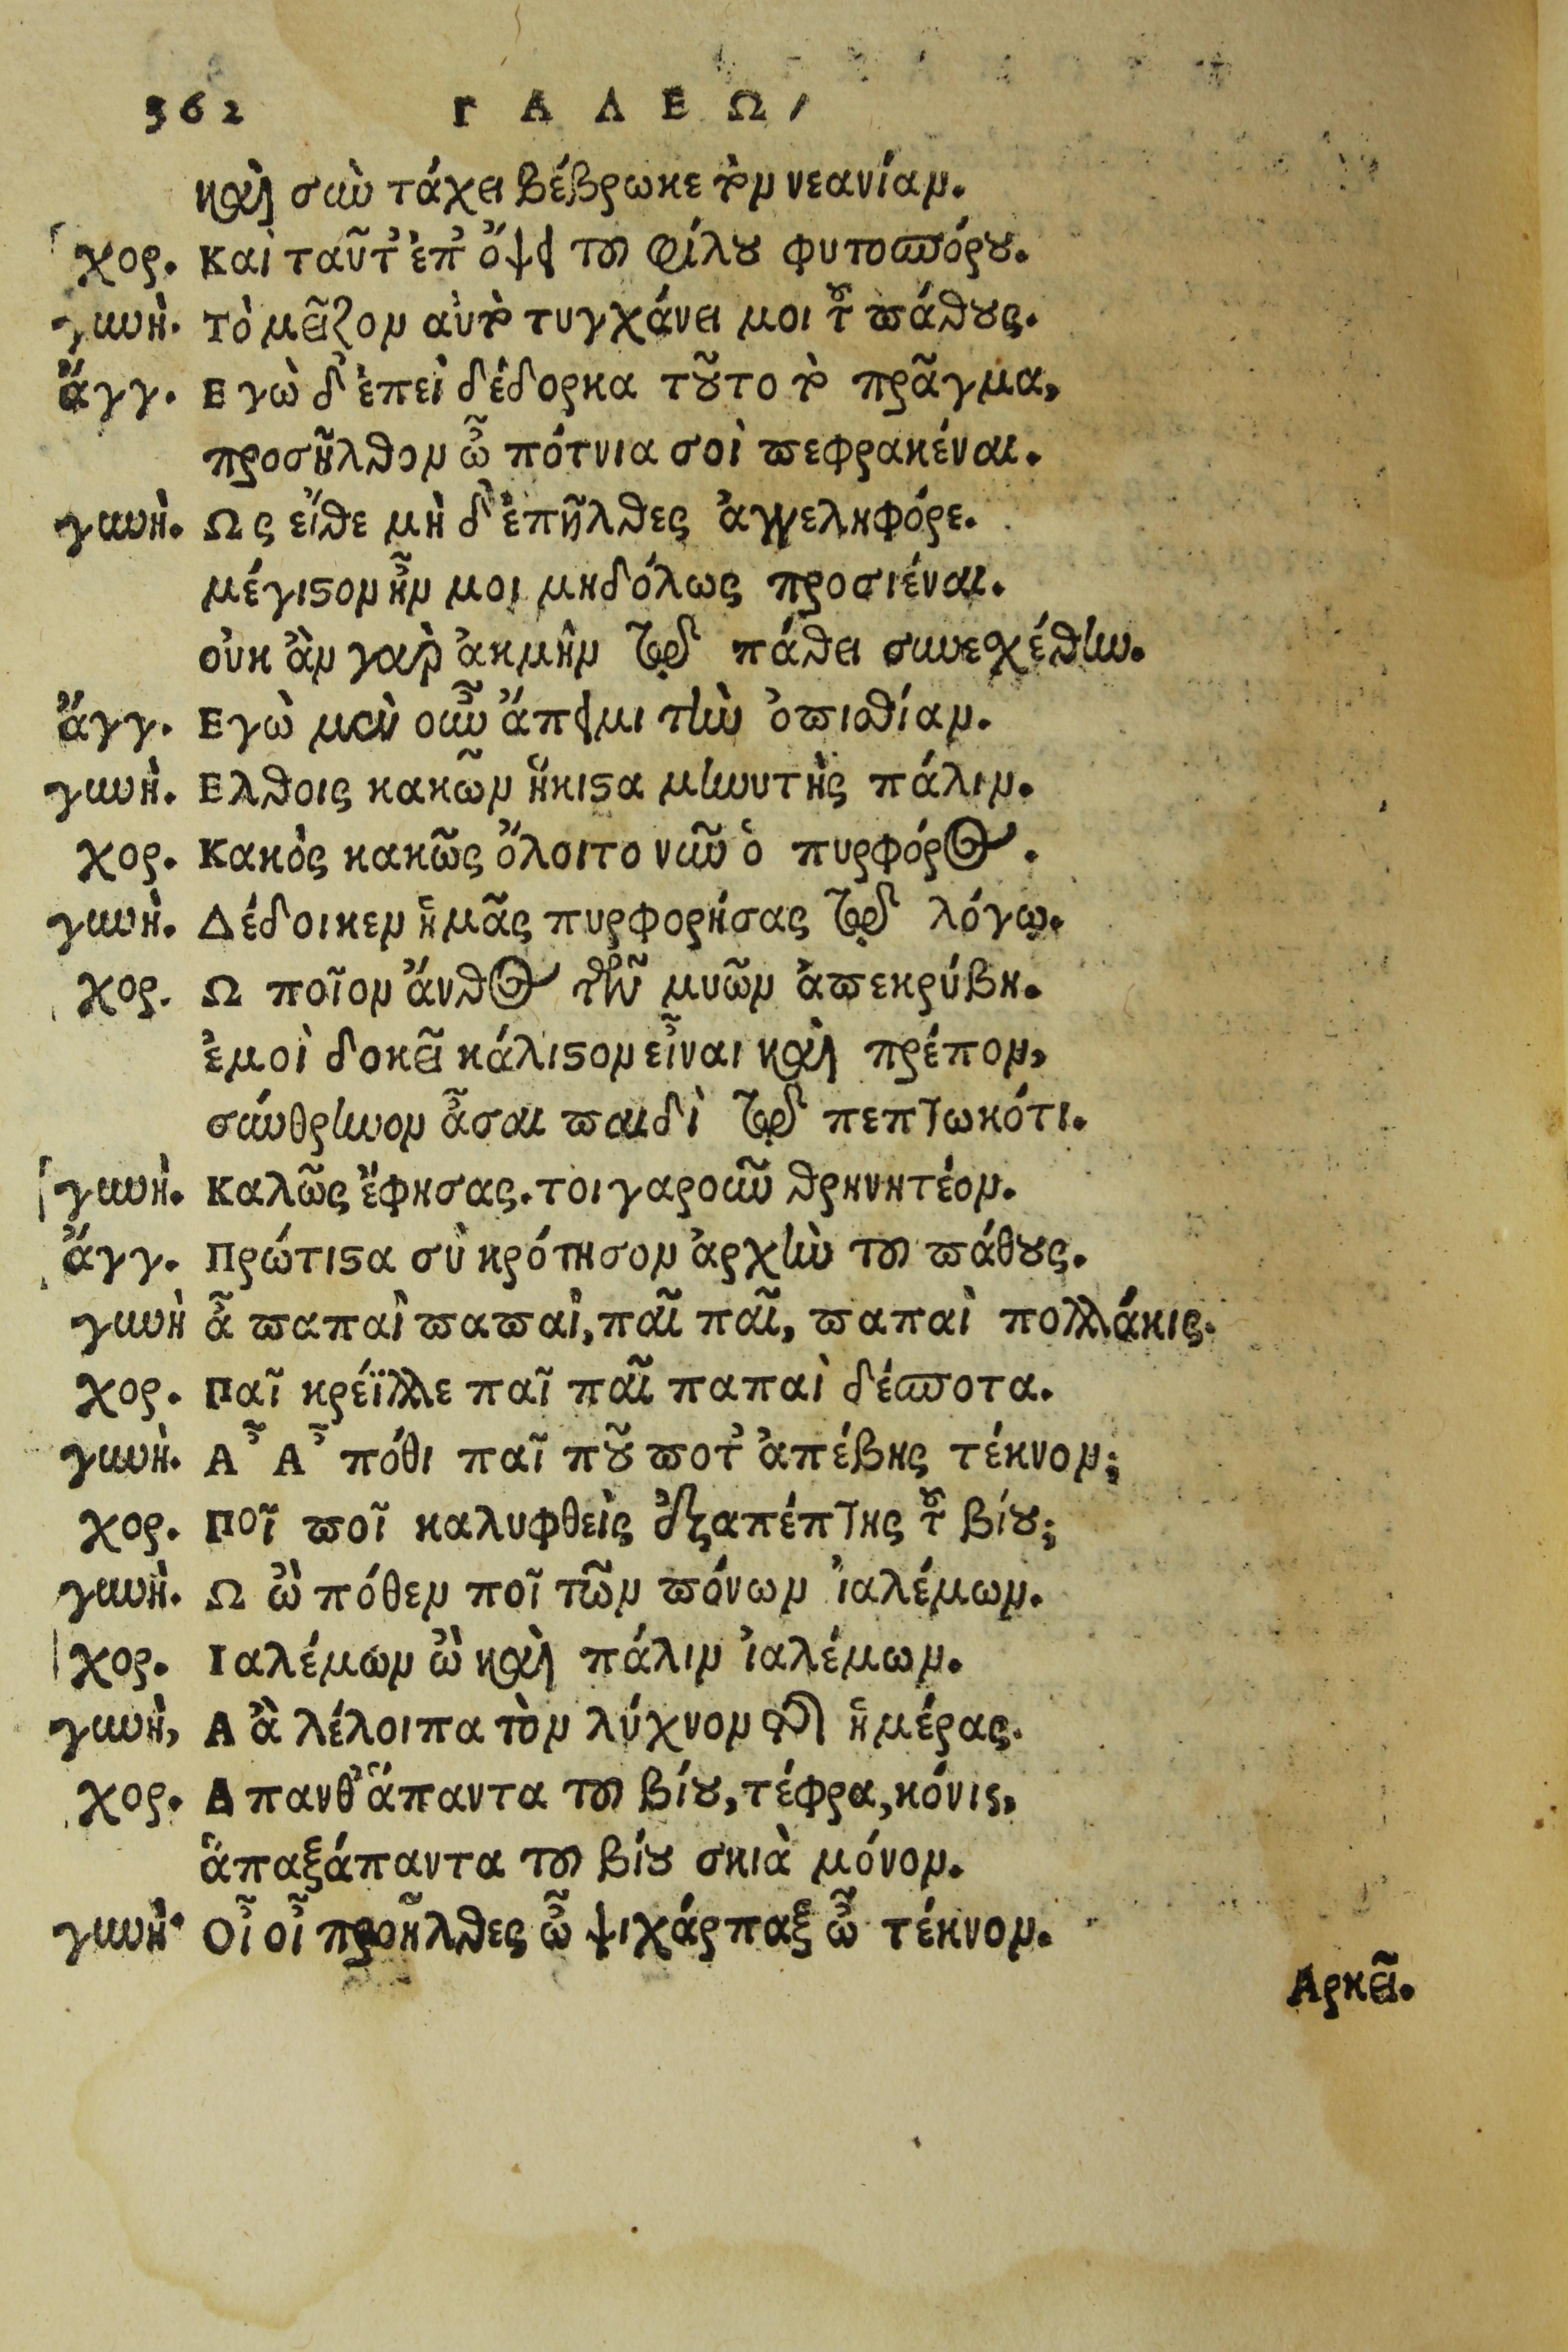 362 ΓΑΛΕΩ,
καὶ σὺν τάχει βέβρωκε τὸν νεανίαν.
χος. Καὶ ταῦτ' ἐπ' ὄψει τοῦ φίλου φυτοσπόρου.
γυνὴ. Τὸ μεῖζον αὐτὸ τυγχάνει μοι τοῦ πάθους.
ἄγγ. Εγὼ δ' ἐπεὶ δέδορκα τοῦτο τὸ πρᾶγμα,
προσῆλθον ὦ πότνια σοὶ πεφρακέναι.
γυνὴ. Ως εἴθε μὴ δ' ἐπῆλθες ἀγγεληφόρε.
μέγιστον ἦν μοι μηδόλως προσιέναι.
οὐκ ἂν γαρ̀ ἀκμὴν τῷδε πάθει συνεσχέθην.
ἄγγ. Εγὼ μεν̀ οὖν ἄπειμι τὴν ὀπισθίαν.
γυνὴ. Ελθοις κακῶν ἥκιστα μηνυτὴς πάλιν.
χορ. Κακὸς κακῶς ὄλοιτο νῦν ὁ πυρφόρος.
γυνὴ. Δέδοικεν ἡμᾶς πυρφορήσας τῷδε λόγῳ.
χορ. Ω ποῖον ἄνθος τῶν μυῶν ἀπεκρύβη.
ἐμοὶ δοκεῖ κάλιστον εἶναι καὶ πρέπον,
σύνθρηνον ᾆσαι παιδὶ τῷδε πεπτωκότι.
γυνὴ. Καλῶς ἔφησας. τοι γαροῦν θρηνητέον.
ἄγγ. Πρώτιστα σὺ κρότησον ἀρχὴν τοῦ πάθους.
γυνὴ ἆ παπαὶ παπαὶ, παῖ παῖ, παπαὶ πολλάκις.
χορ. Παῖ κρέϊλλε παῖ παῖ παπαὶ δέσποτα.
γυνὴ. Α῏ Α῏ πόθι παῖ ποῦ ποτ' ἀπέβης τέκνον;
χορ. Ποῖ ποῖ καλυφθεὶς ἐξαπέπτης τοῦ βίου;
γυνὴ. Ω ὢ πόθεν ποῖ τῶν πόνων ἰαλέμων.
χορ. Ιαλέμων ὢ καὶ πάλιν ἰαλέμων.
γυνὴ, Α ἂ λέλοιπα τὸν λύχνον τῆς ἡμέρας.
χορ. Απανθ' ἅπαντα τοῦ βίου, τέφρα, κόνις,
ἅπαξάπαντα τοῦ βίου σκιὰ μόνον.
γυνὴ. Οἶ οἶ προῆλθες ὦ ψιχάρπαξ ὦ τέκνον.
Αρκεῖ.